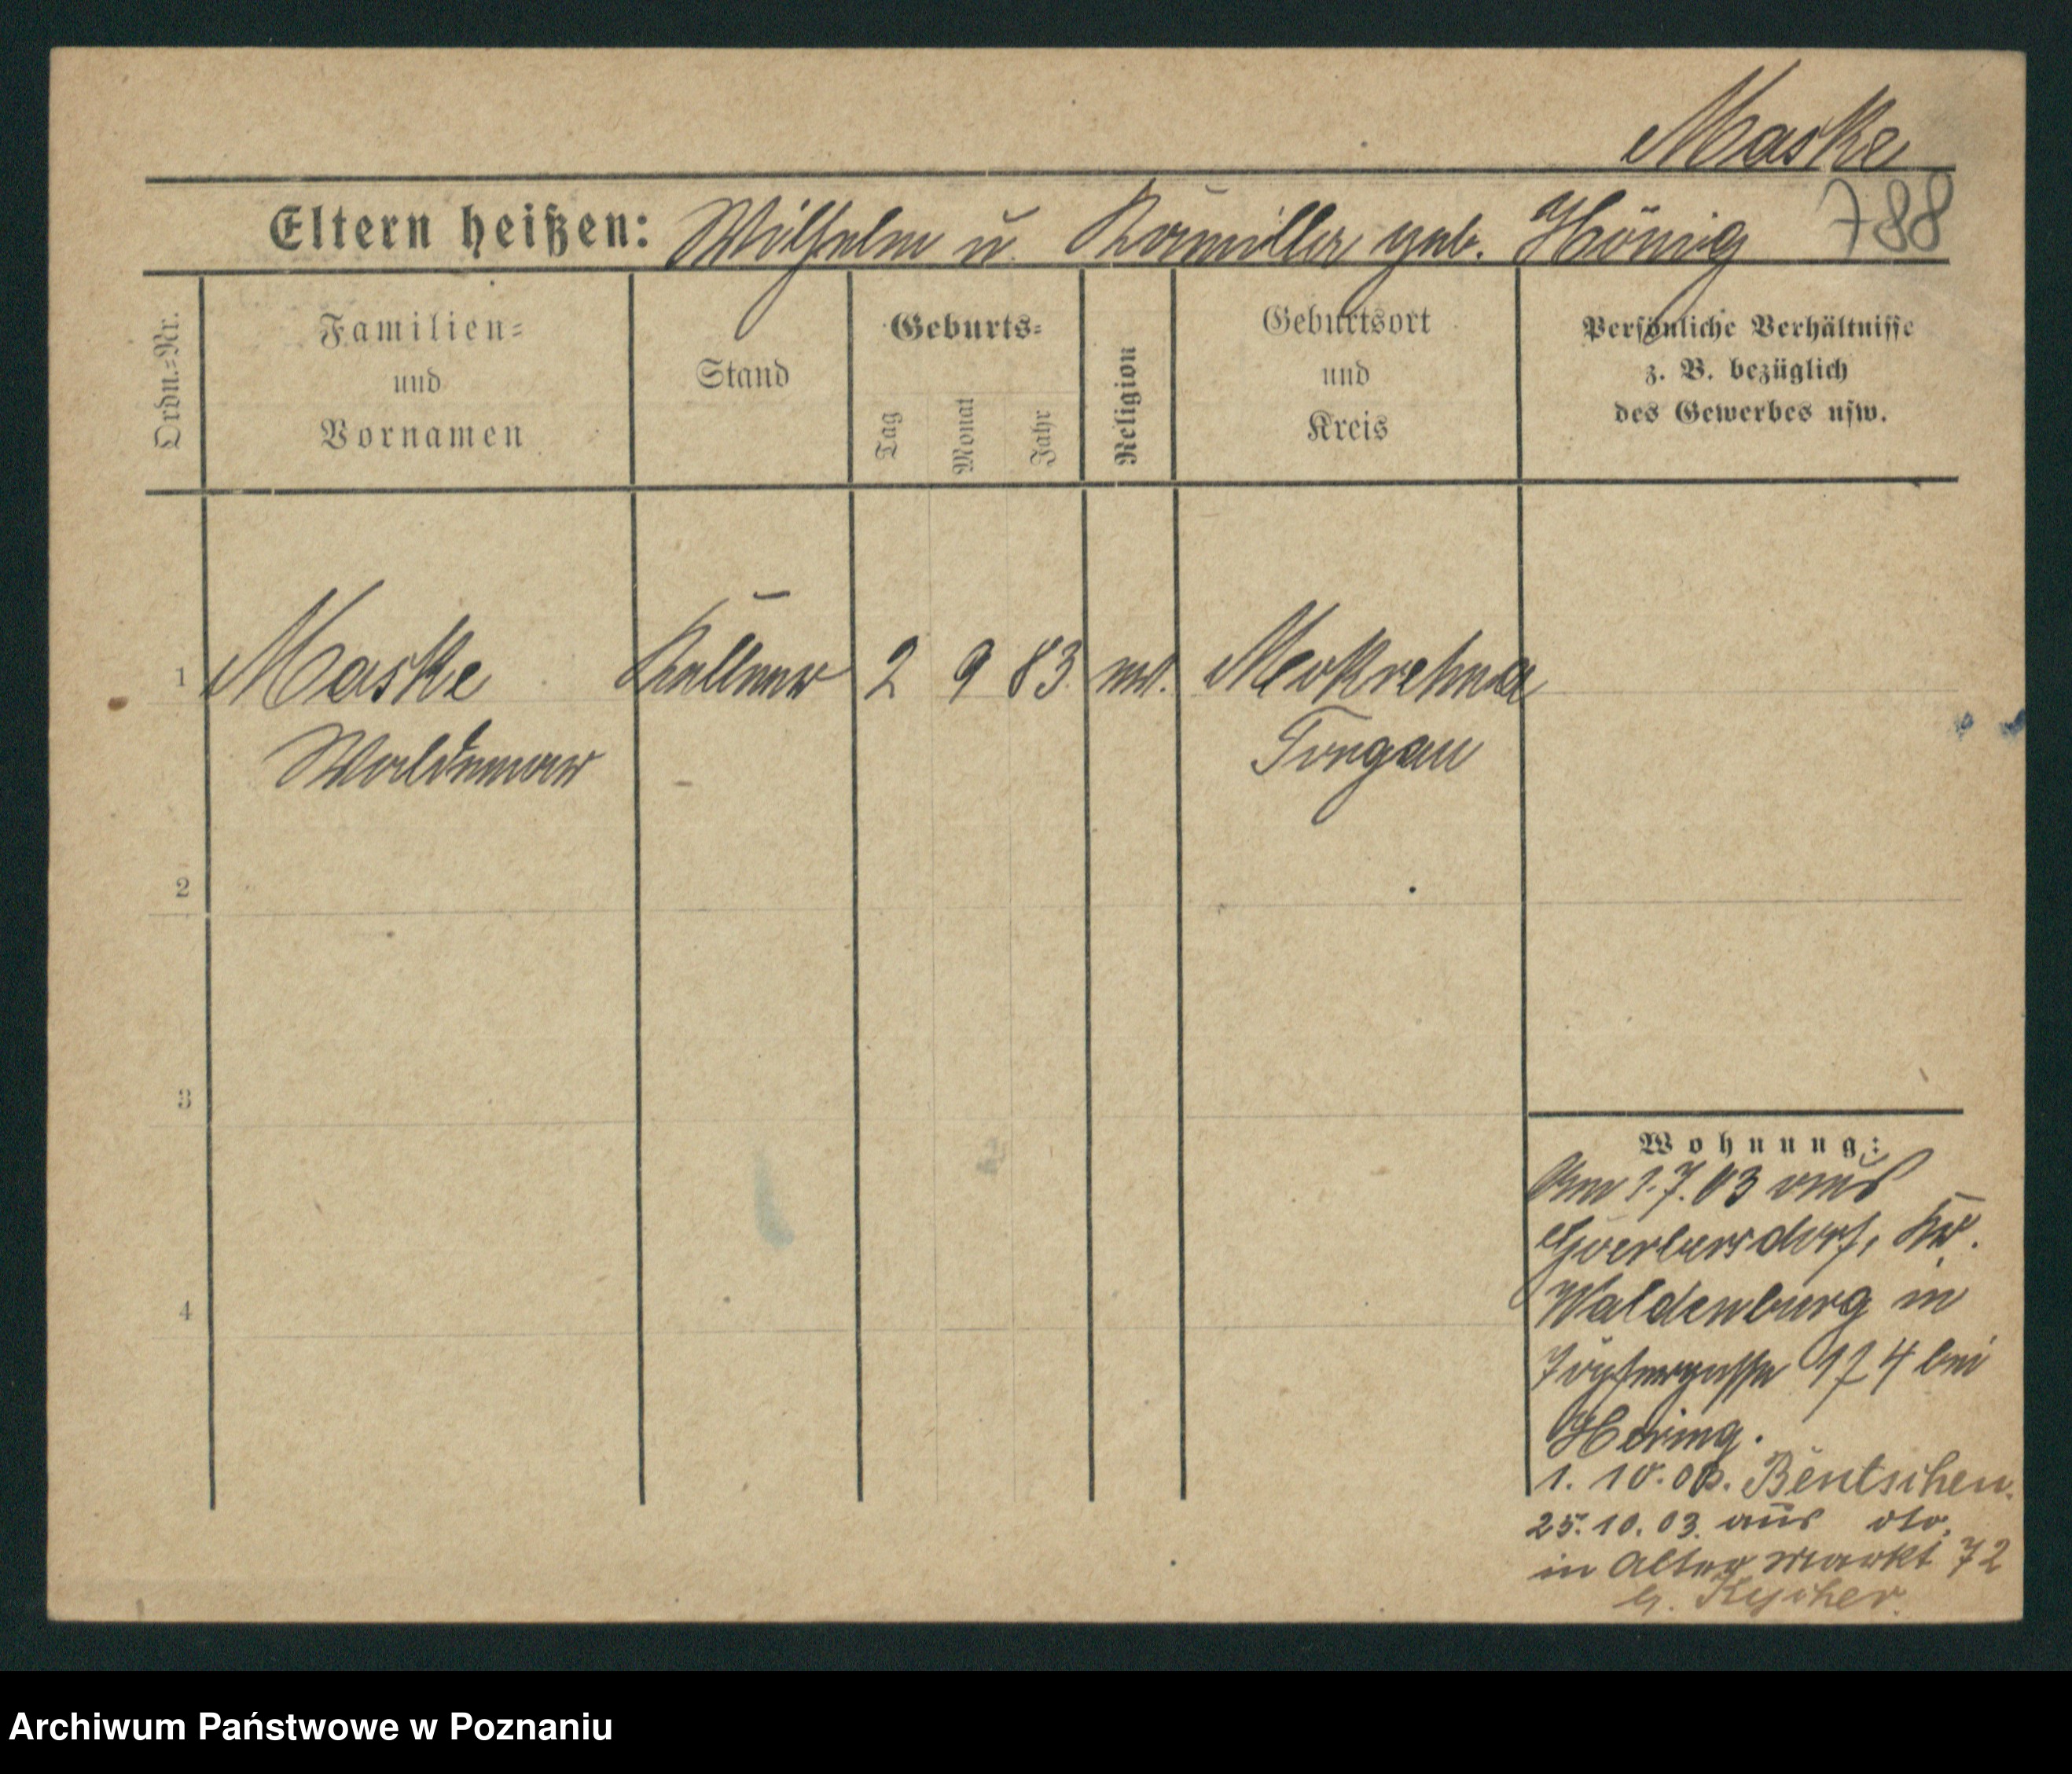 Maske
Eltern heißen: Wilhelm u. Kamilla geb. Hönig 788
Ordn.=Nr.
Familien=
und
Vornamen
Stand
Geburts=
Tag
Monat
Jahr
Religion
Geburtsort
und
Kreis
Persönliche Verhältnisse
z. B. bezüglich
des Gewerbes usw.
1 Maske Kellner 2 9 83 ev. Mokrehna
Waldemar Torgau
2
3
4
Wohnung:
Am 1.7.03 aus
Goerbersdorf, Kr.
Waldenburg in
Töpfergasse 174 bei
Hering.
1. 10. 03. Bentschen.
25. 10. 03. aus dto.
in Alter Markt 72
Archiwum Państwowe w Poznaniu